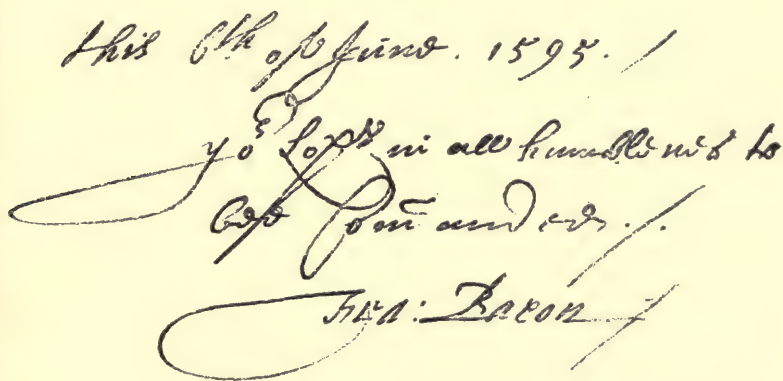 this 6th of June. 1595. /
yor Lops in all humblenes to
be Commanded. /.
Fra: Bacon /